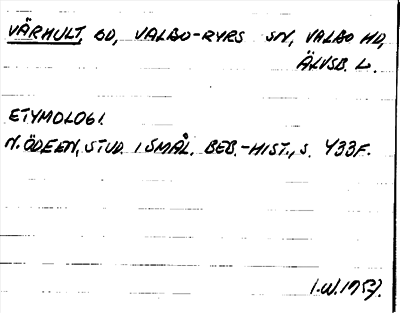 VÄRHULT, BD, VALBO-RYRS SN, VALBO HD,
ÄLVSB. L.
ETYMOLOGI.
N. ÖDEEN, STUD. I SMÅL. BEB.-HIST., S. 433F.
I.W. 1957.